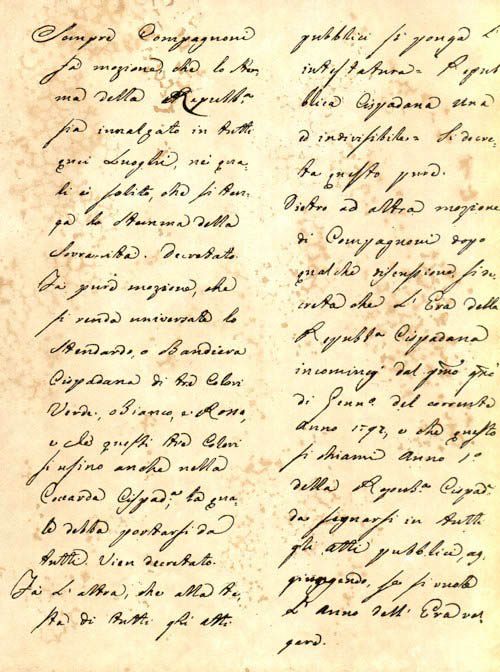 Sempre Compagnoni
fa mozione, che lo Stem-
ma della Repubb.ª
sia innalzato in tutti
quei Luoghi, nei qua-
li è solito, che si ten-
ga lo Stemma della
Sovranità. Decretato.
Fa pure mozione, che
si renda universale lo
Stendardo, o Bandiera
Cispadana di tre Colori
Verde, Bianco, e Rosso,
e che questi tre Colori
si usino anche nella
Coccarda Cispad.ª la qua-
le debba portarsi da
tutti. Vien decretato.
Fa l'altra, che alla te-
sta di tutti gli atti
pubblici si ponga l'
intestatura = Repub-
blica Cispadana una
ed indivisibile = Si decre-
ta questo pure.
Dietro ad altra mozione
di Compagnoni dopo
qualche discussione, si de-
creta che l'Era della
Repubb.ª Cispadana
incominci dal p.mo
di Genn.º del corrente
Anno 1797, e che questo
si chiami Anno 1.º
della Repubb.ª Cispad.ª
da segnarsi in tutti
gli atti pubblici, ag-
giungendo, se si vuole
l'anno dell'Era vol-
gare.